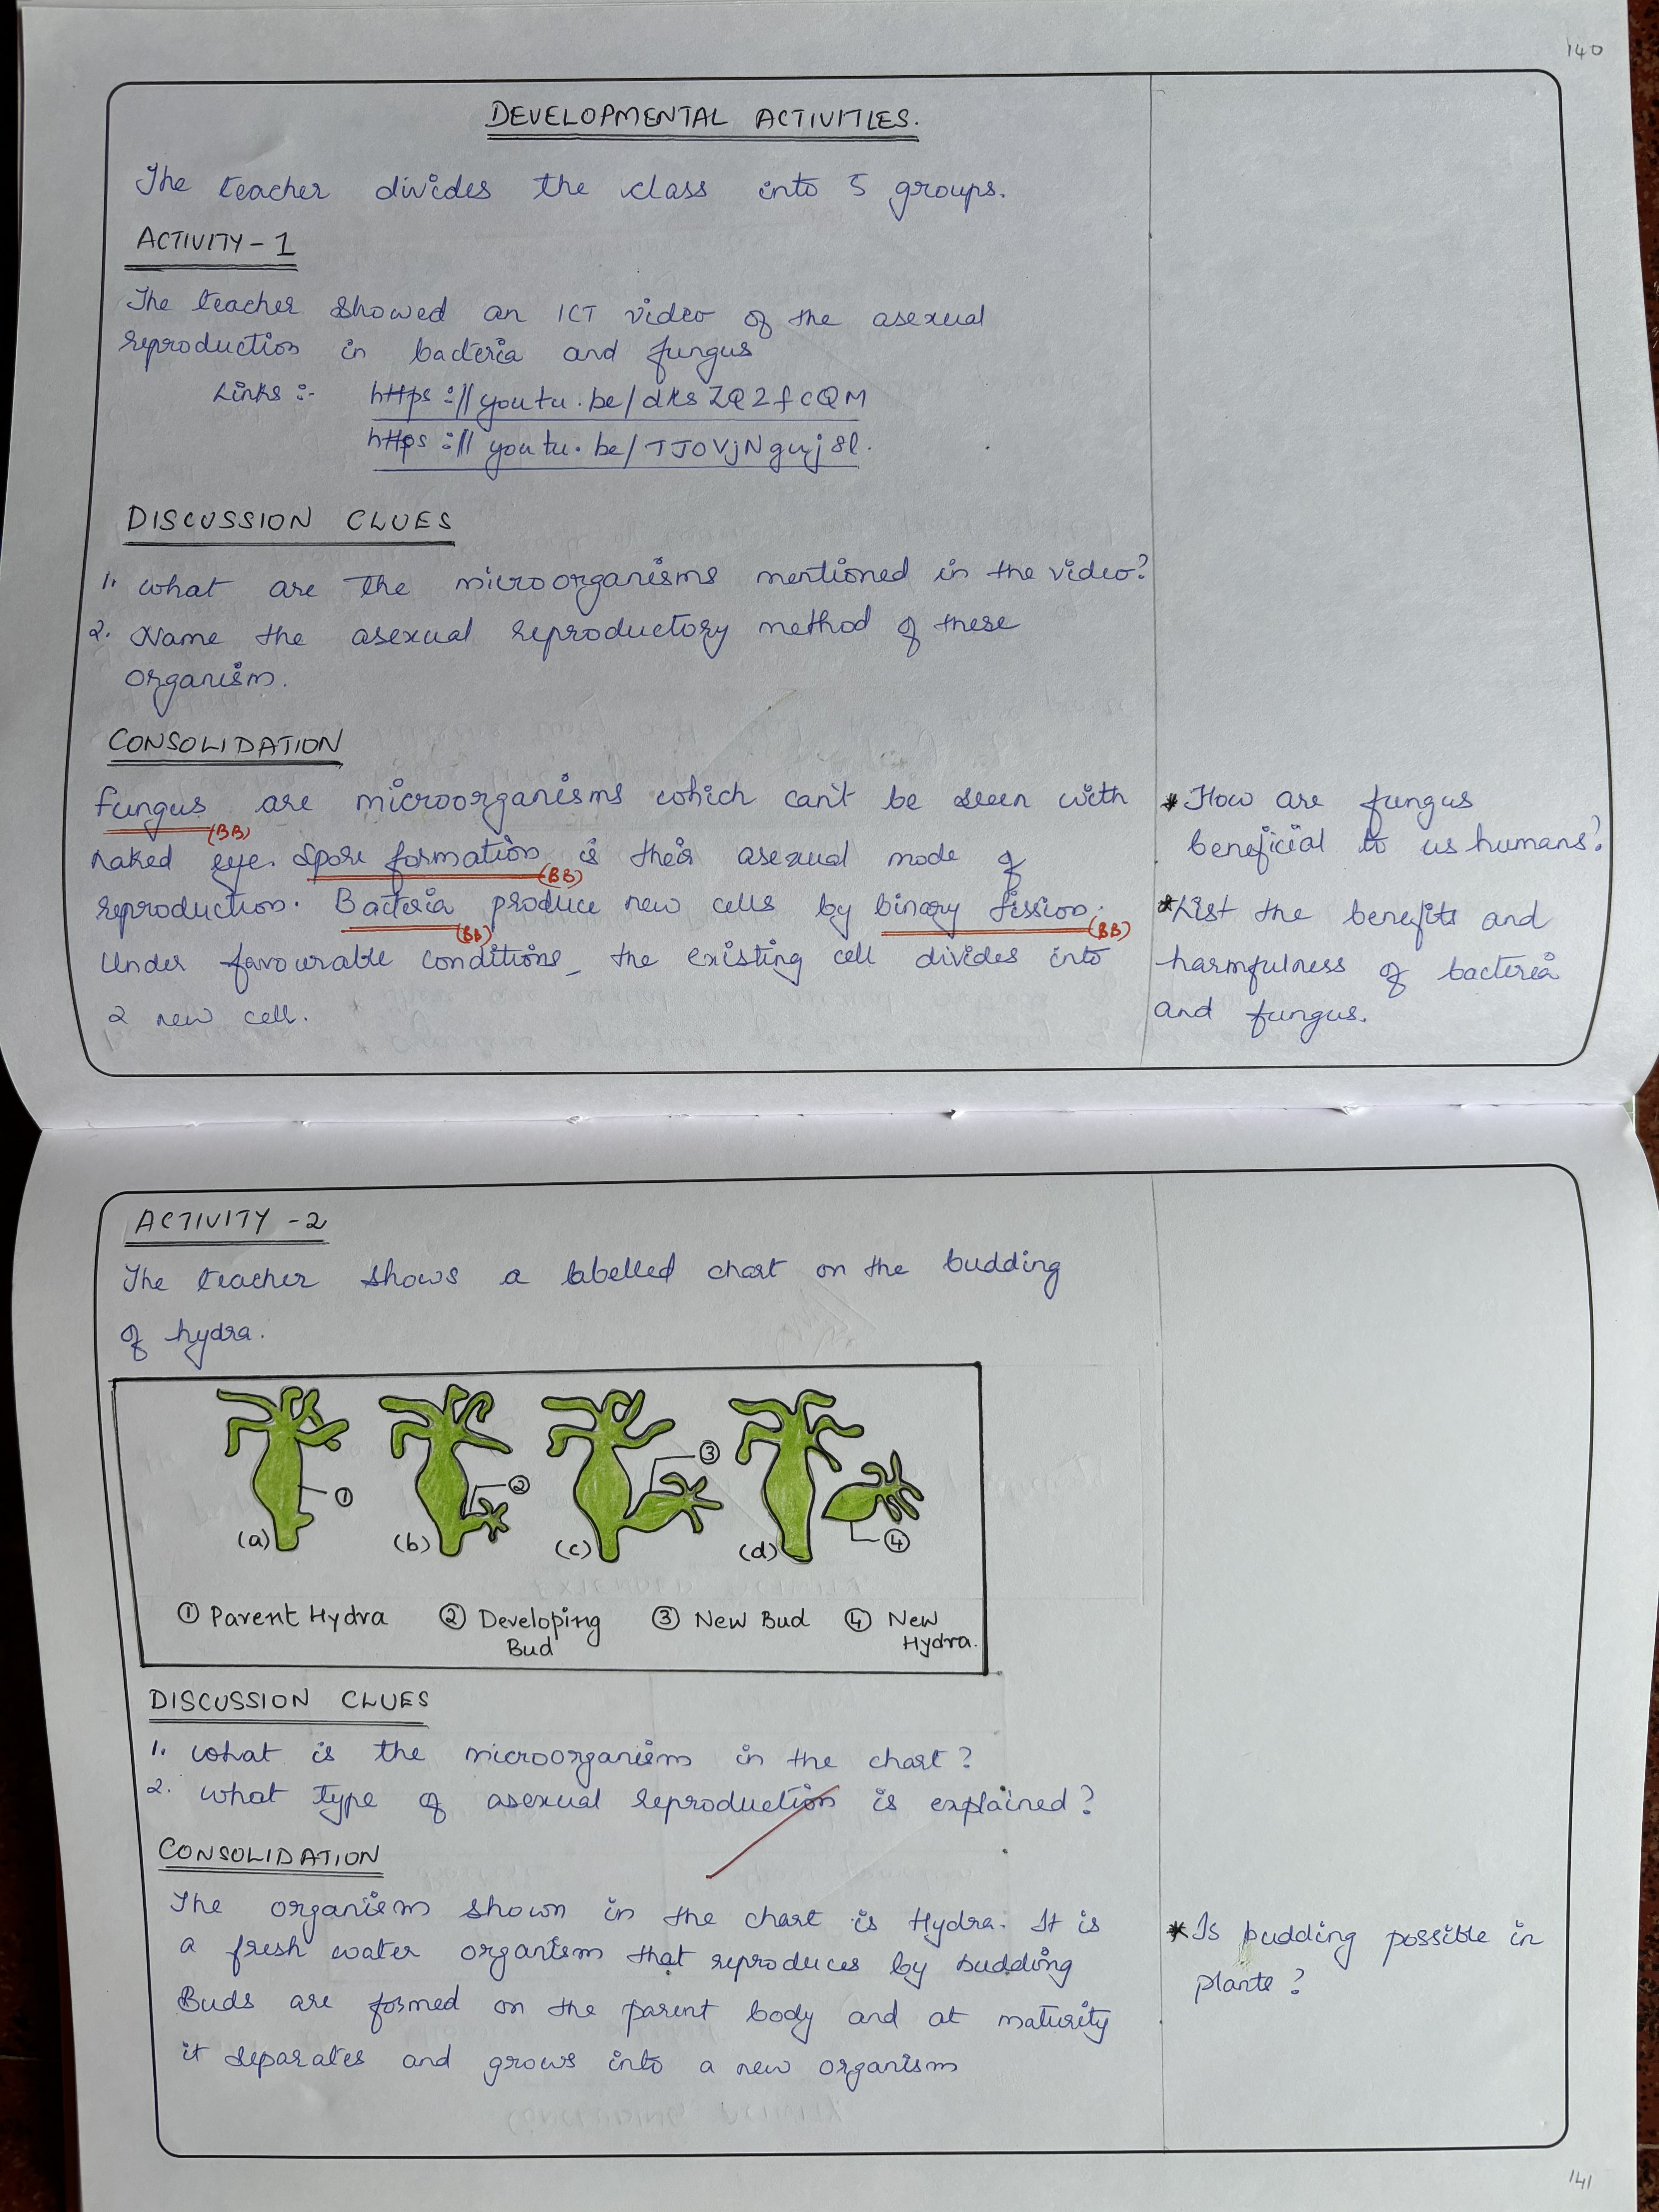 140
DEVELOPMENTAL ACTIVITIES.
The teacher divides the class into 5 groups.
ACTIVITY - 1
The teacher showed an ICT video of the asexual
reproduction in bacteria and fungus
Links :- https://youtu.be/dksZQ2fcQM
https://youtu.be/TJOVjNguj8l.
DISCUSSION CLUES
1. What are the microorganisms mentioned in the video?
2. Name the asexual reproductory method of these
organism.
CONSOLIDATION
Fungus are microorganisms which can't be seen with
(BB)
naked eye. Spore formation is their asexual mode of
(BB)
reproduction. Bacteria produce new cells by binary fission.
(BB) (BB)
Under favourable conditions, the existing cell divides into
2 new cell.
* How are fungus
beneficial to us humans?
* List the benefits and
harmfulness of bacteria
and fungus.
ACTIVITY - 2
The teacher shows a labelled chart on the budding
of hydra.
3
2
1
4
(a) (b) (c) (d)
① Parent Hydra ② Developing ③ New Bud ④ New
Bud Hydra.
DISCUSSION CLUES
1. What is the microorganism in the chart?
2. What type of asexual reproduction is explained?
CONSOLIDATION
The organism shown in the chart is Hydra. It is
a fresh water organism that reproduces by budding
Buds are formed on the parent body and at maturity
it separates and grows into a new organism
* Is budding possible in
plants?
141